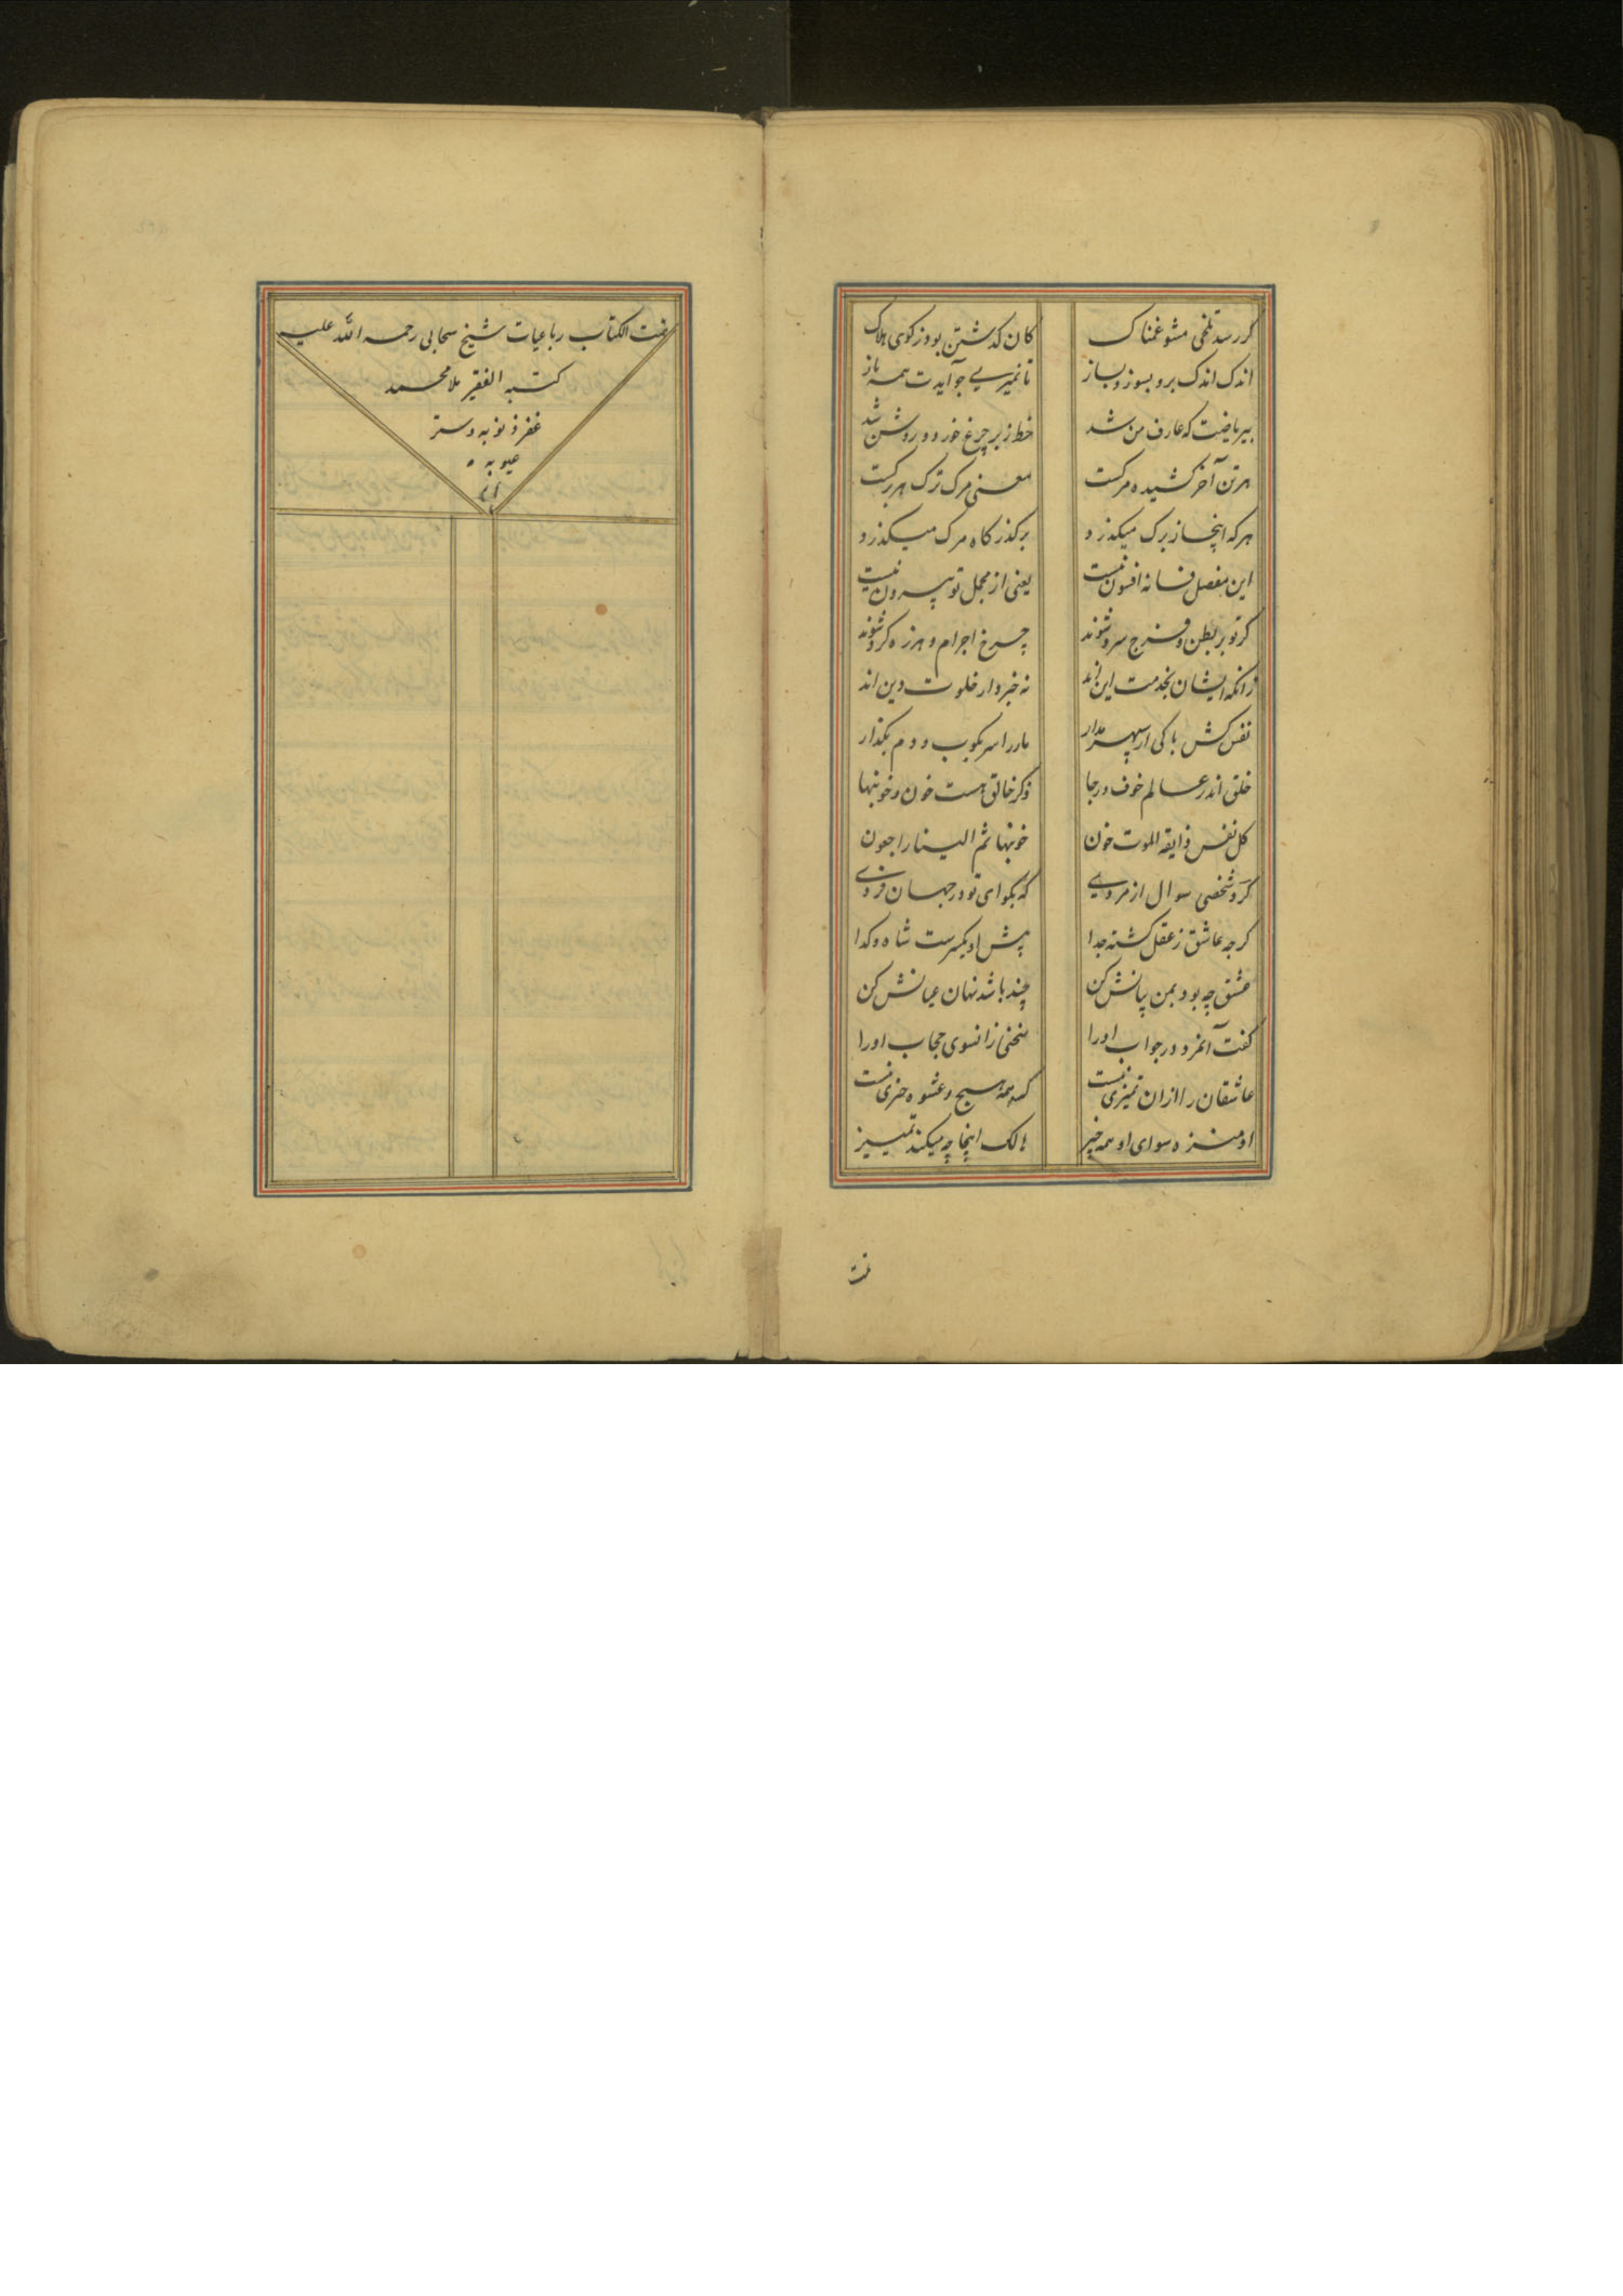 گر رسد تلخی مشو غمناک کان گذشتن بود ز کوی هلاک
اندک اندک برو بسوز و بساز تا نمیری چو آیدت همه باز
بیریاضت که عارف من شد خط زبر چرغ خورد و روشن شد
هر تن آخر کشیده مرکست معنی مرک ترک هر برکست
هر که اینجا ز برک میکذرد بر کذر کاه مرک میکذرد
این مفصل فسانه افسون نیست یعنی از مجمل تو بیرون نیست
کر تو بر بطن و فرج سرد شوند چرخ اجرام و هرزه کرد شوند
زانکه ایشان بخدمت این اند نه خبردار خلوت دین اند
نفس کش باکی از سپهر مدار مار را سر بکوب و دم بکذار
خلق اندر عالم خوف و رجا ذکر خالق هست خون و خونبها
کل نفس ذایقه الموت خون خونبها ثم الینا راجعون
کرد شخصی سوال از مردی که بکو ای تو در جهان فردی
کرچه عاشق ز عقل کشته جدا پیش او یکسرست شاه و کدا
عشق چه بود بمن بیانش کن چند باشد نهان عیانش کن
کفت آنمرد در جواب او را سخنی زانسوی حجاب او را
عاشقان را ازان تمیزی نیست که همه هیچ و عشوه چیزی نیست
او منزه سوای او همه چیز اینجا چه میکند تمییز
تمت
تمت الکتاب رباعیات شیخ سحابی رحمه الله علیه
کتبه الفقیر ملا محمد
غفر ذنوبه و ستر
عیوبه